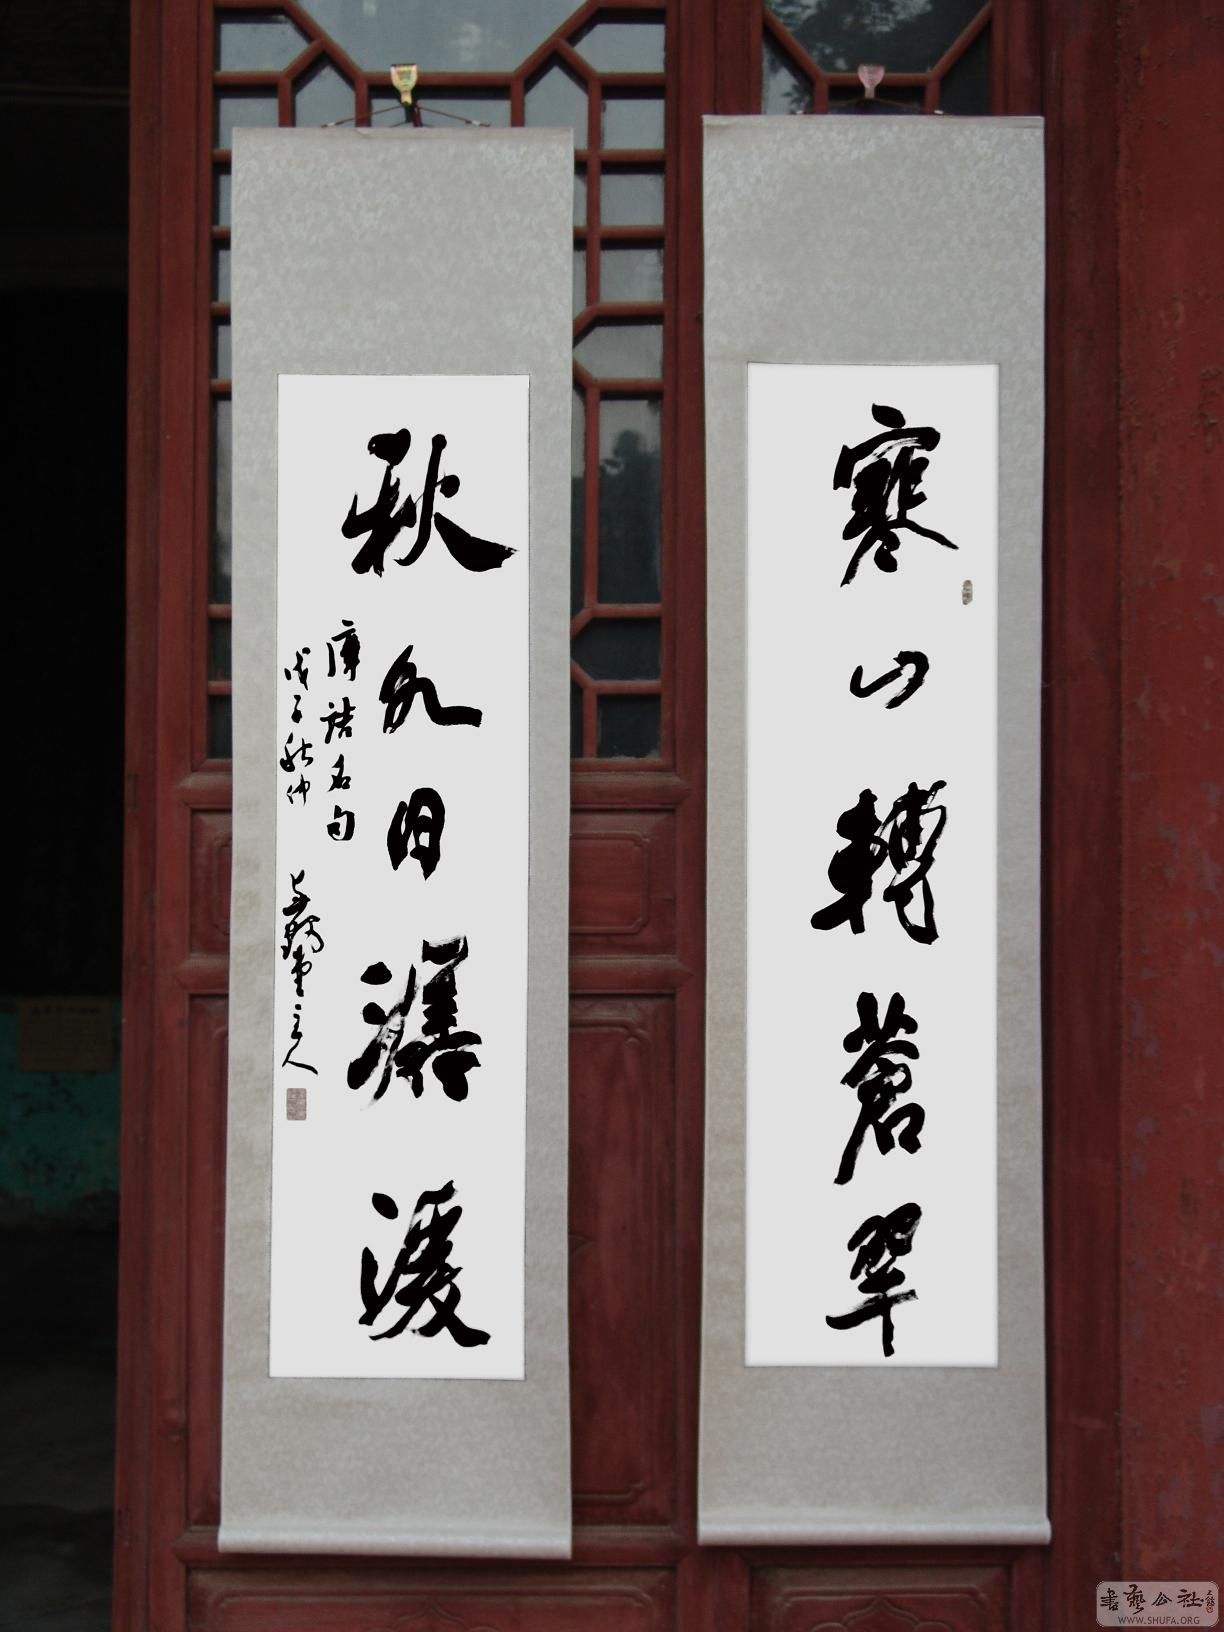 寒山轉蒼翠
秋水日潺湲
唐詩名句
戊子秋仲 堂主人
書藝公社
WWW.SHUFA.ORG